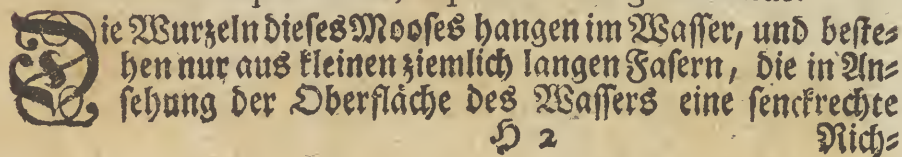 Die Wurzeln dieses Mooses hangen im Wasser, und beste⸗
hen nur aus kleinen ziemlich langen Fasern, die in An⸗
sehung der Oberfläche des Wassers eine senckrechte
H 2 Rich⸗